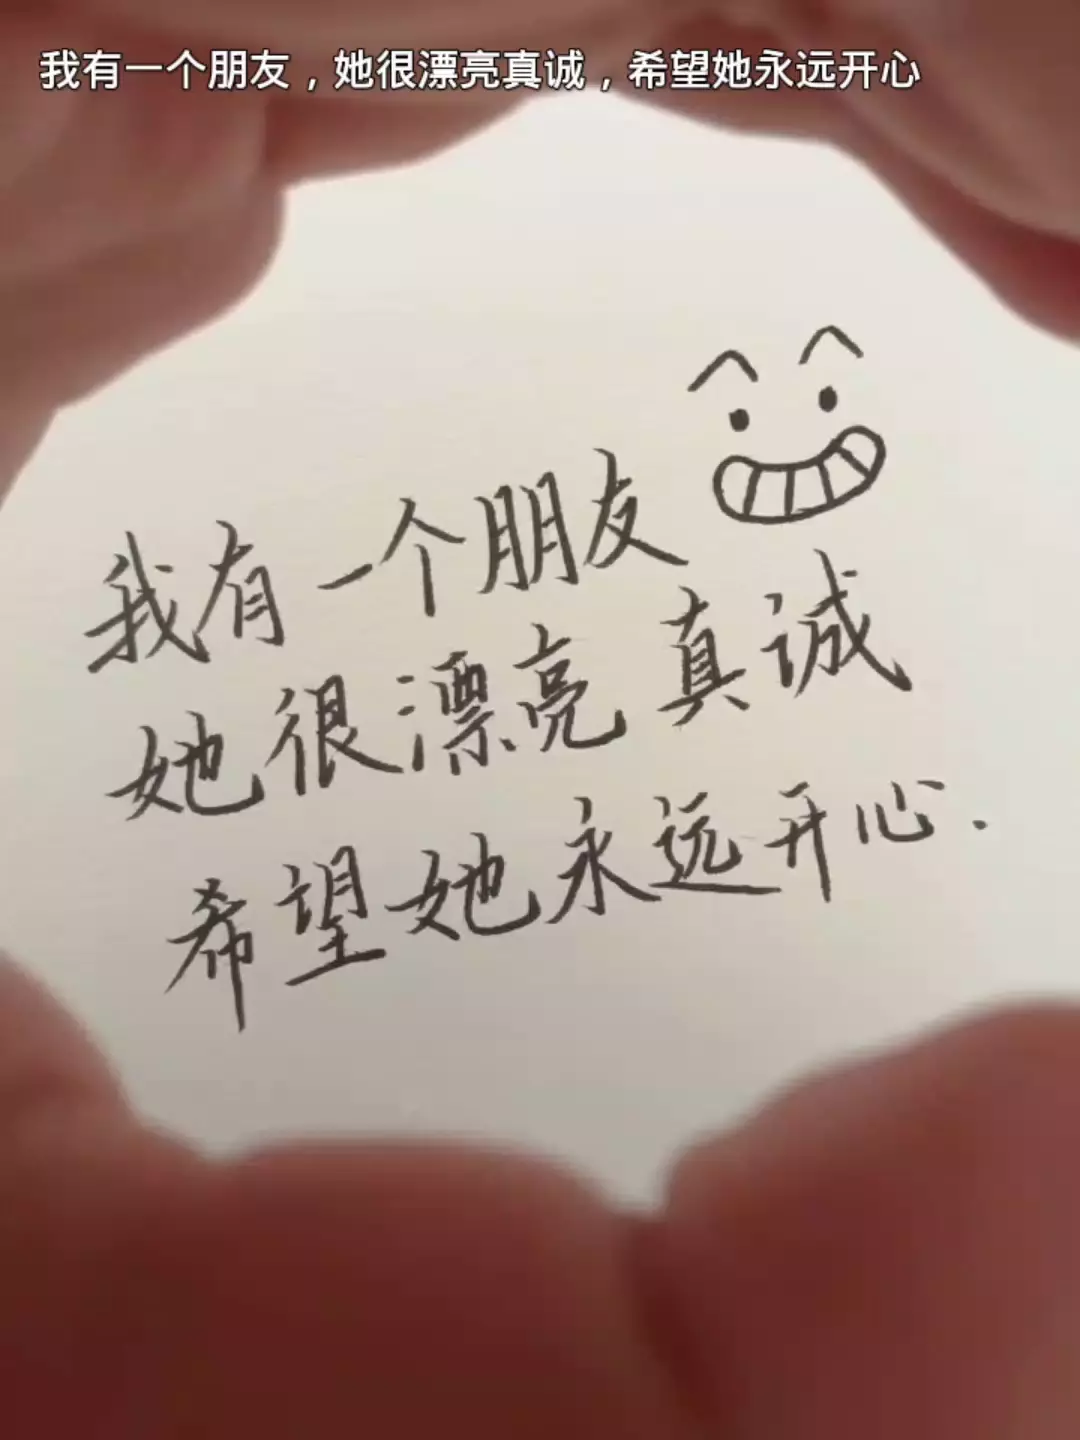 我有一个朋友，她很漂亮真诚，希望她永远开心
我有一个朋友
她很漂亮真诚
希望她永远开心.